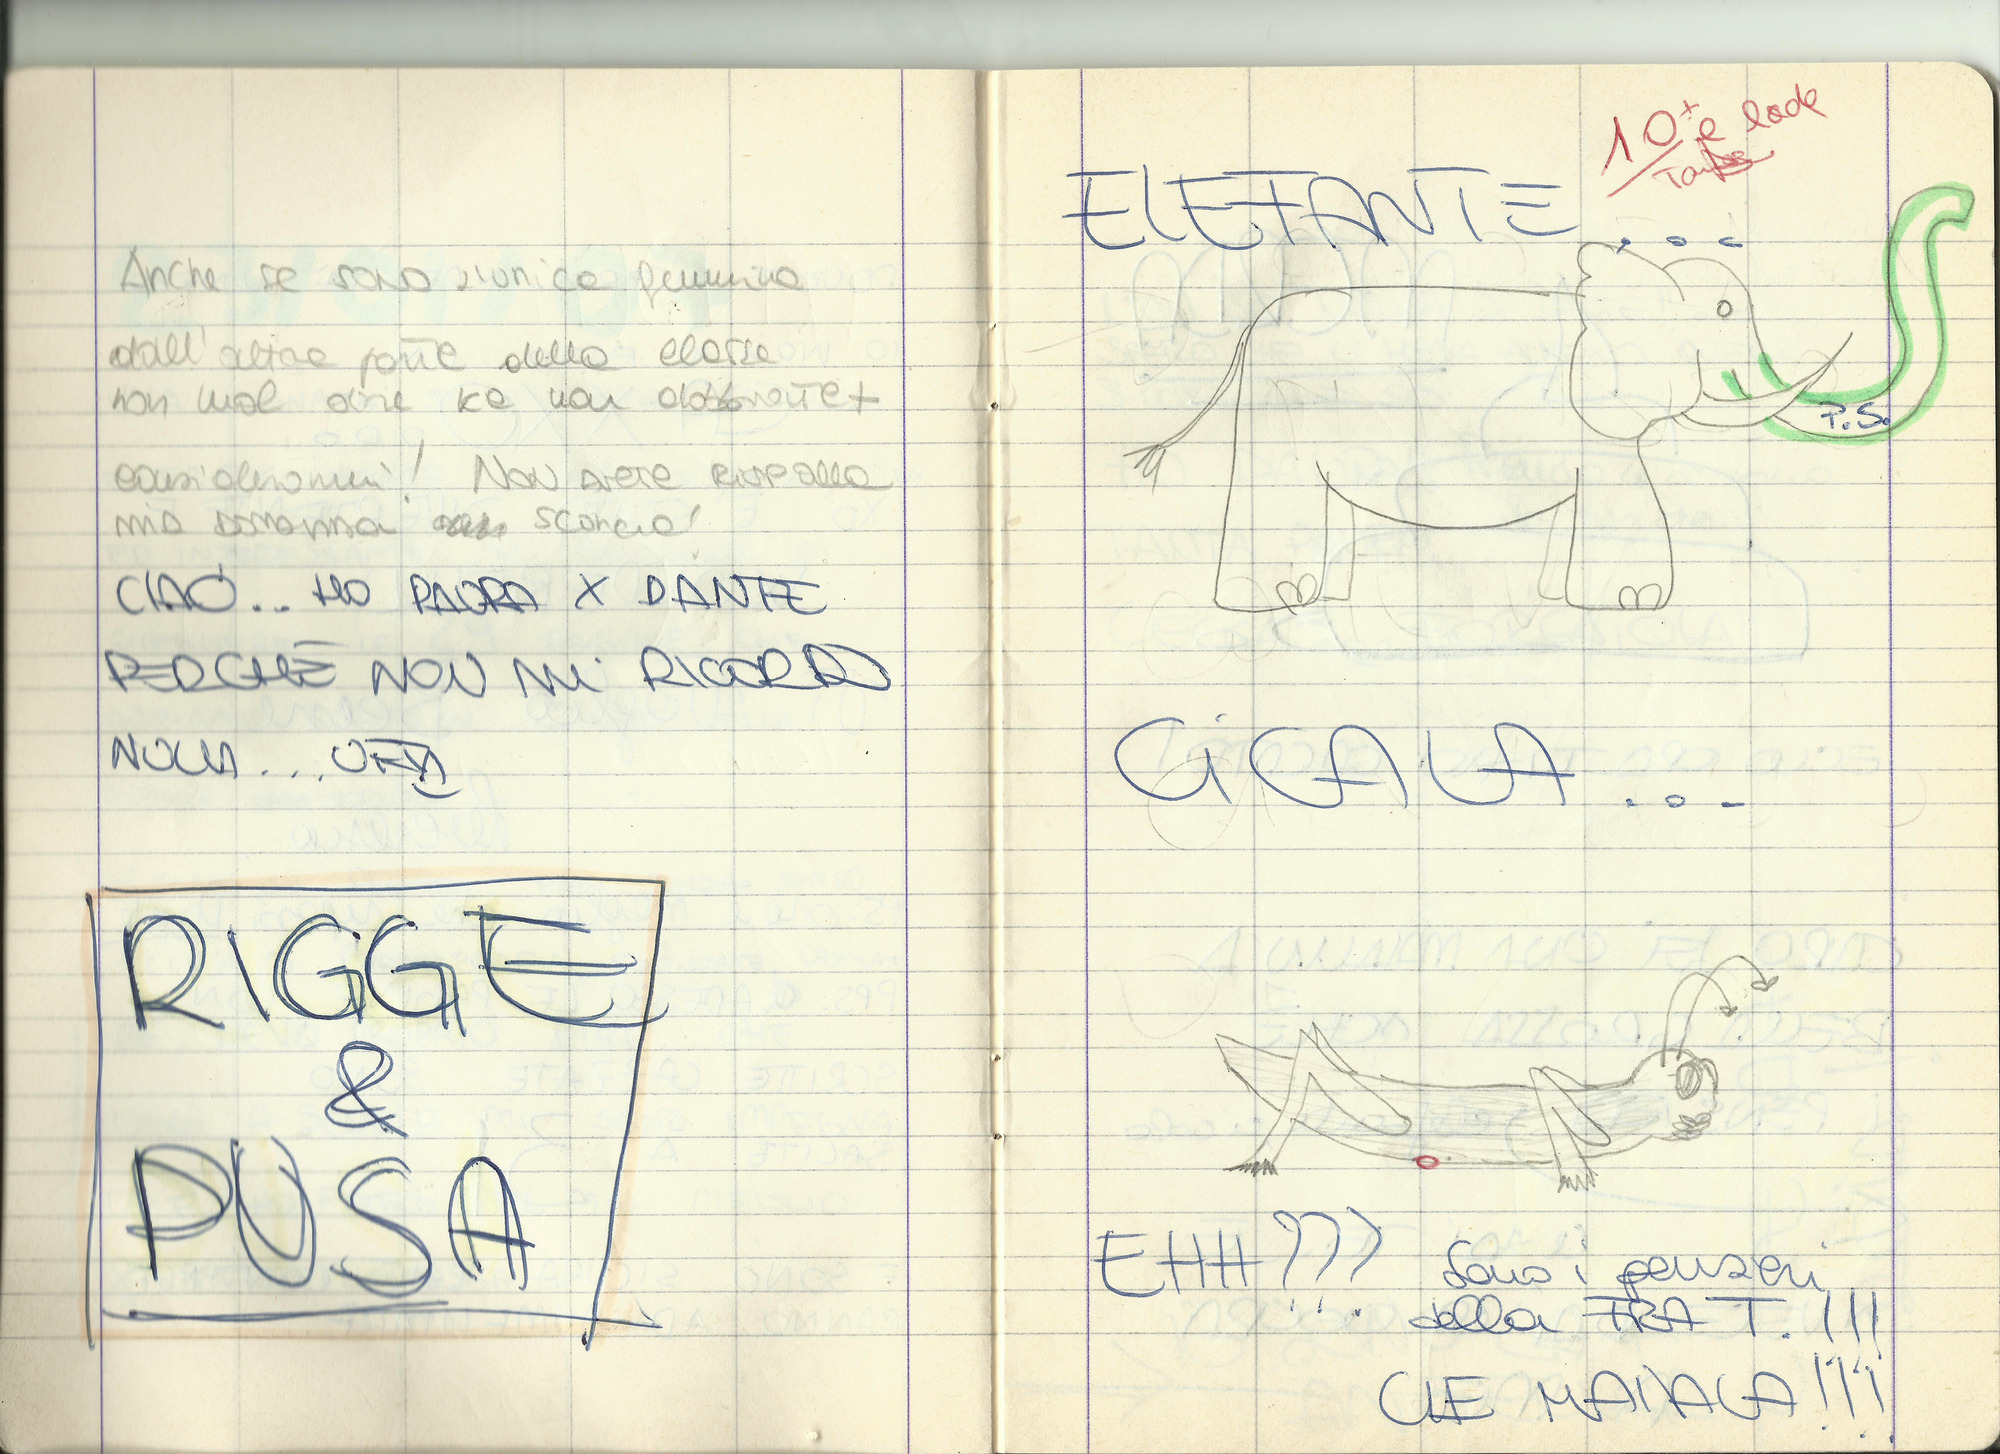 Anche se sono l'unica femmina
dall'altra parte della classe
non vuol dire ke non dobbiate +
considerarmi! Non avete rispolla
mia sorcio!
CIAO... HO PAURA X DANTE
PERCHÈ NON MI RICORDO
NULLA...
RIGGE
&
PUSA
10+ e lode
ELEFANTE...
P.S.
CiCALA...
EHH??? Sono i penseri
della FRA T.!!!
CHE MAIALA!!!